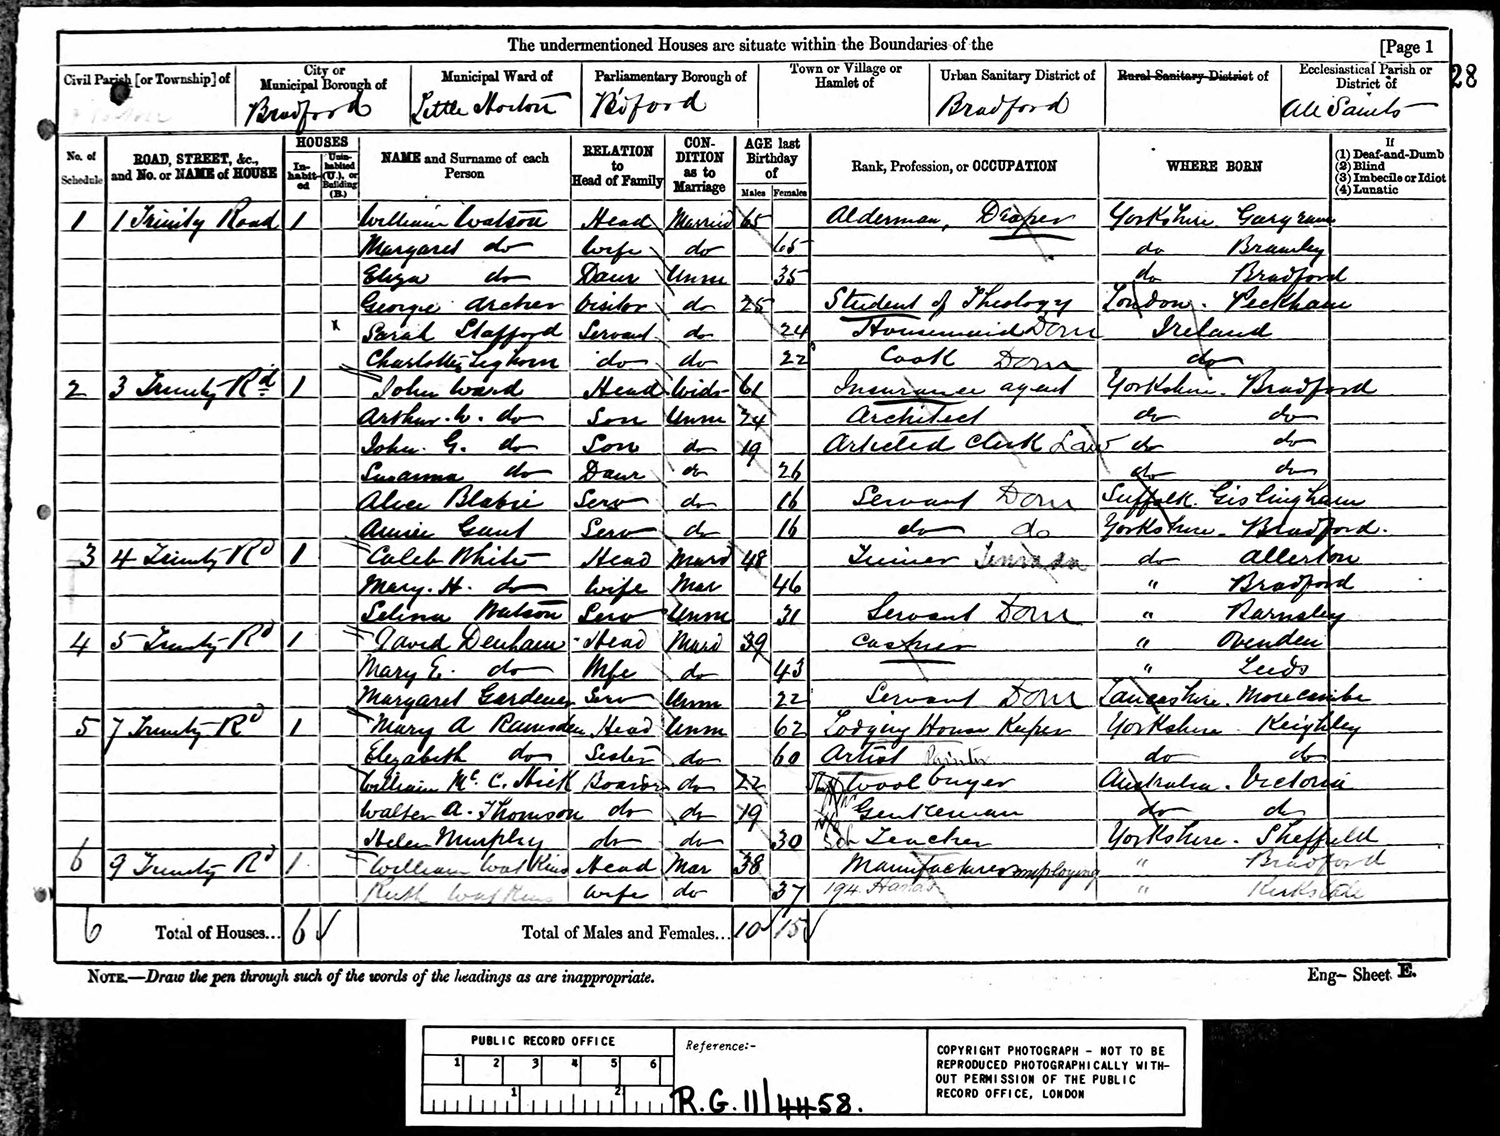 The undermentioned Houses are situate within the Boundaries of the [Page 1
28
Civil Parish [or Township] of City or Municipal Borough of Municipal Ward of Parliamentary Borough of Town or Village or Hamlet of Urban Sanitary District of Rural Sanitary District of Ecclesiastical Parish or District of
Bradford Little Horton Bdford Bradford All Saints
No. of Schedule ROAD, STREET, &c., and No. or NAME of HOUSE HOUSES In-habit-ed Unin-habited (U.), or Building (B.) NAME and Surname of each Person RELATION to Head of Family CON-DITION as to Marriage AGE last Birthday of Males Females Rank, Profession, or OCCUPATION WHERE BORN If (1) Deaf-and-Dumb (2) Blind (3) Imbecile or Idiot (4) Lunatic
1 1 Trinity Road 1 William Watson Head Married 65 Alderman, Draper Yorkshire Gargrave
Margaret do Wife do 65 do Bramley
Eliza do Daur Unm 35 do Bradford
George Archer Visitor do 25 Student of Theology London. Peckham
x Sarah Stafford Servant do 24 Housemaid Dom Ireland
Charlotte Leghorn do do 22 Cook Dom do
2 3 Trinity Rd 1 John Ward Head Widr 61 Insurance agent Yorkshire. Bradford
Arthur. W. do Son Unm 24 Architect do do
John. G. do Son do 19 Articled Clerk Law do do
Susanna do Daur do 26 do do
Alice Serv do 16 Servant Dom Suffolk. Gislingham
Annie Gant Serv do 16 do do Yorkshire. Bradford.
3 4 Trinity Rd 1 Caleb White Head Mard 48 do Allerton
Mary. H. do Wife Mar 46 " Bradford
Selina Watson Serv Unm 31 Servant Dom " Barnsley
4 5 Trinity Rd 1 David Denham Head Mard 39 Cashier " Ovenden
Mary E. do Wife do 43 " Leeds
Margaret Gardener Serv Unm 22 Servant Dom Lancashire. Morecambe
5 7 Trinity Rd 1 Mary A Ramsden Head Unm 62 Lodging House Keeper Yorkshire Keighley
Elizabeth do Sister do 60 Artist Painter do do
William Mc. C. Hick Boarder do 22 Wool buyer Australia. Victoria
Walter A. Thomson do do 19 Gentleman do do
Helen Murphy do do 30 Sch Teacher Yorkshire. Sheffield
6 9 Trinity Rd 1 William Watkins Head Mar 38 Manufacturer employing " Bradford
Ruth Watkins Wife do 37 194 Hands "
6 Total of Houses... 6 Total of Males and Females... 10 15
NOTE.—Draw the pen through such of the words of the headings as are inappropriate. Eng– Sheet E.
PUBLIC RECORD OFFICE
1 2 3 4 5 6
1 2
Reference:-
R.G. 11/4458.
COPYRIGHT PHOTOGRAPH - NOT TO BE
REPRODUCED PHOTOGRAPHICALLY WITH-
OUT PERMISSION OF THE PUBLIC
RECORD OFFICE, LONDON